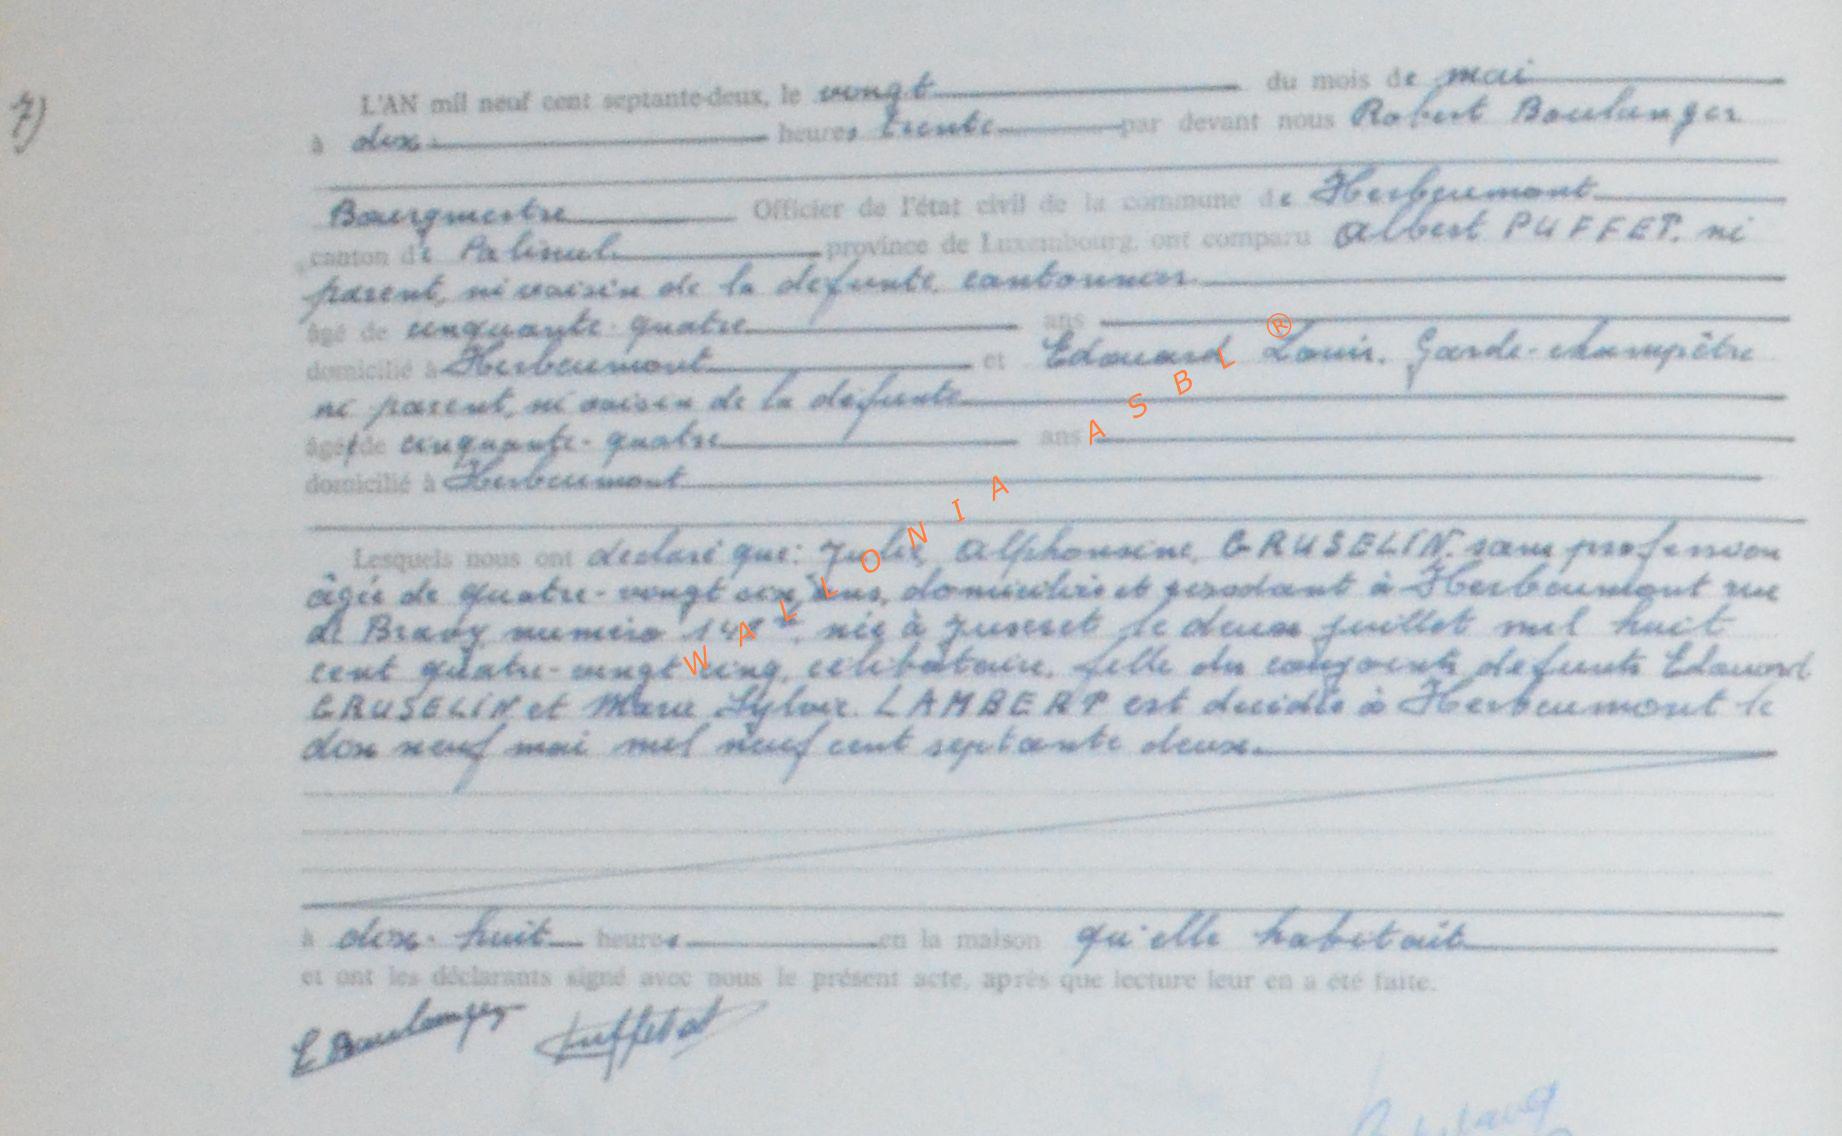 7)
L'AN mil neuf cent septante-deux, le vingt du mois de mai
à dix heures trente par devant nous Robert Boulanger
Bourgmestre Officier de l'état civil de la commune de Herbeumont
canton de Paliseul province de Luxembourg, ont comparu Albert PUFFET, ni
parent, ni voisin de la defunte, cantonnier
âgé de cinquante-quatre ans
domicilié à Herbeumont et Edouard Louis, Garde-champêtre
ni parent, ni voisin de la défunte
âgé de cinquante-quatre ans
domicilié à Herbeumont
Lesquels nous ont declaré que: Julie, Alphonsine, GRUSELIN, sans profession
âgée de quatre-vingt six ans, domiciliée et résidant à Herbeumont rue
de numéro née à le deux juillet mil huit
cent quatre-vingt cinq, célibataire, fille des conjoints defunts Edouard
GRUSELIN et Marie Sylvie LAMBERT est décédée à Herbeumont le
dix neuf mai mil neuf cent septante deux.
à dix-huit heures en la maison qu'elle habitait
et ont les déclarants signé avec nous le présent acte, après que lecture leur en a été faite.
Boulanger
WALLONIA ASBL ®